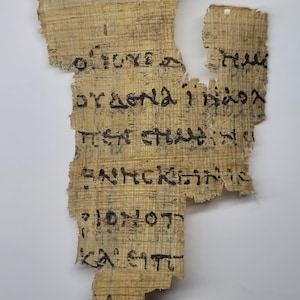 ΟΙΙΟΥΔΑ ΗΜΙ
ΟΥΔΕΝΑΪΝΑΟΛ
ΠΕΝϹΗΜΑΙΝΩ
ΘΝΗϹΚΕΙΝΙϹ
ΡΙΟΝΟΠ
ΚΑΙΕΙΠ